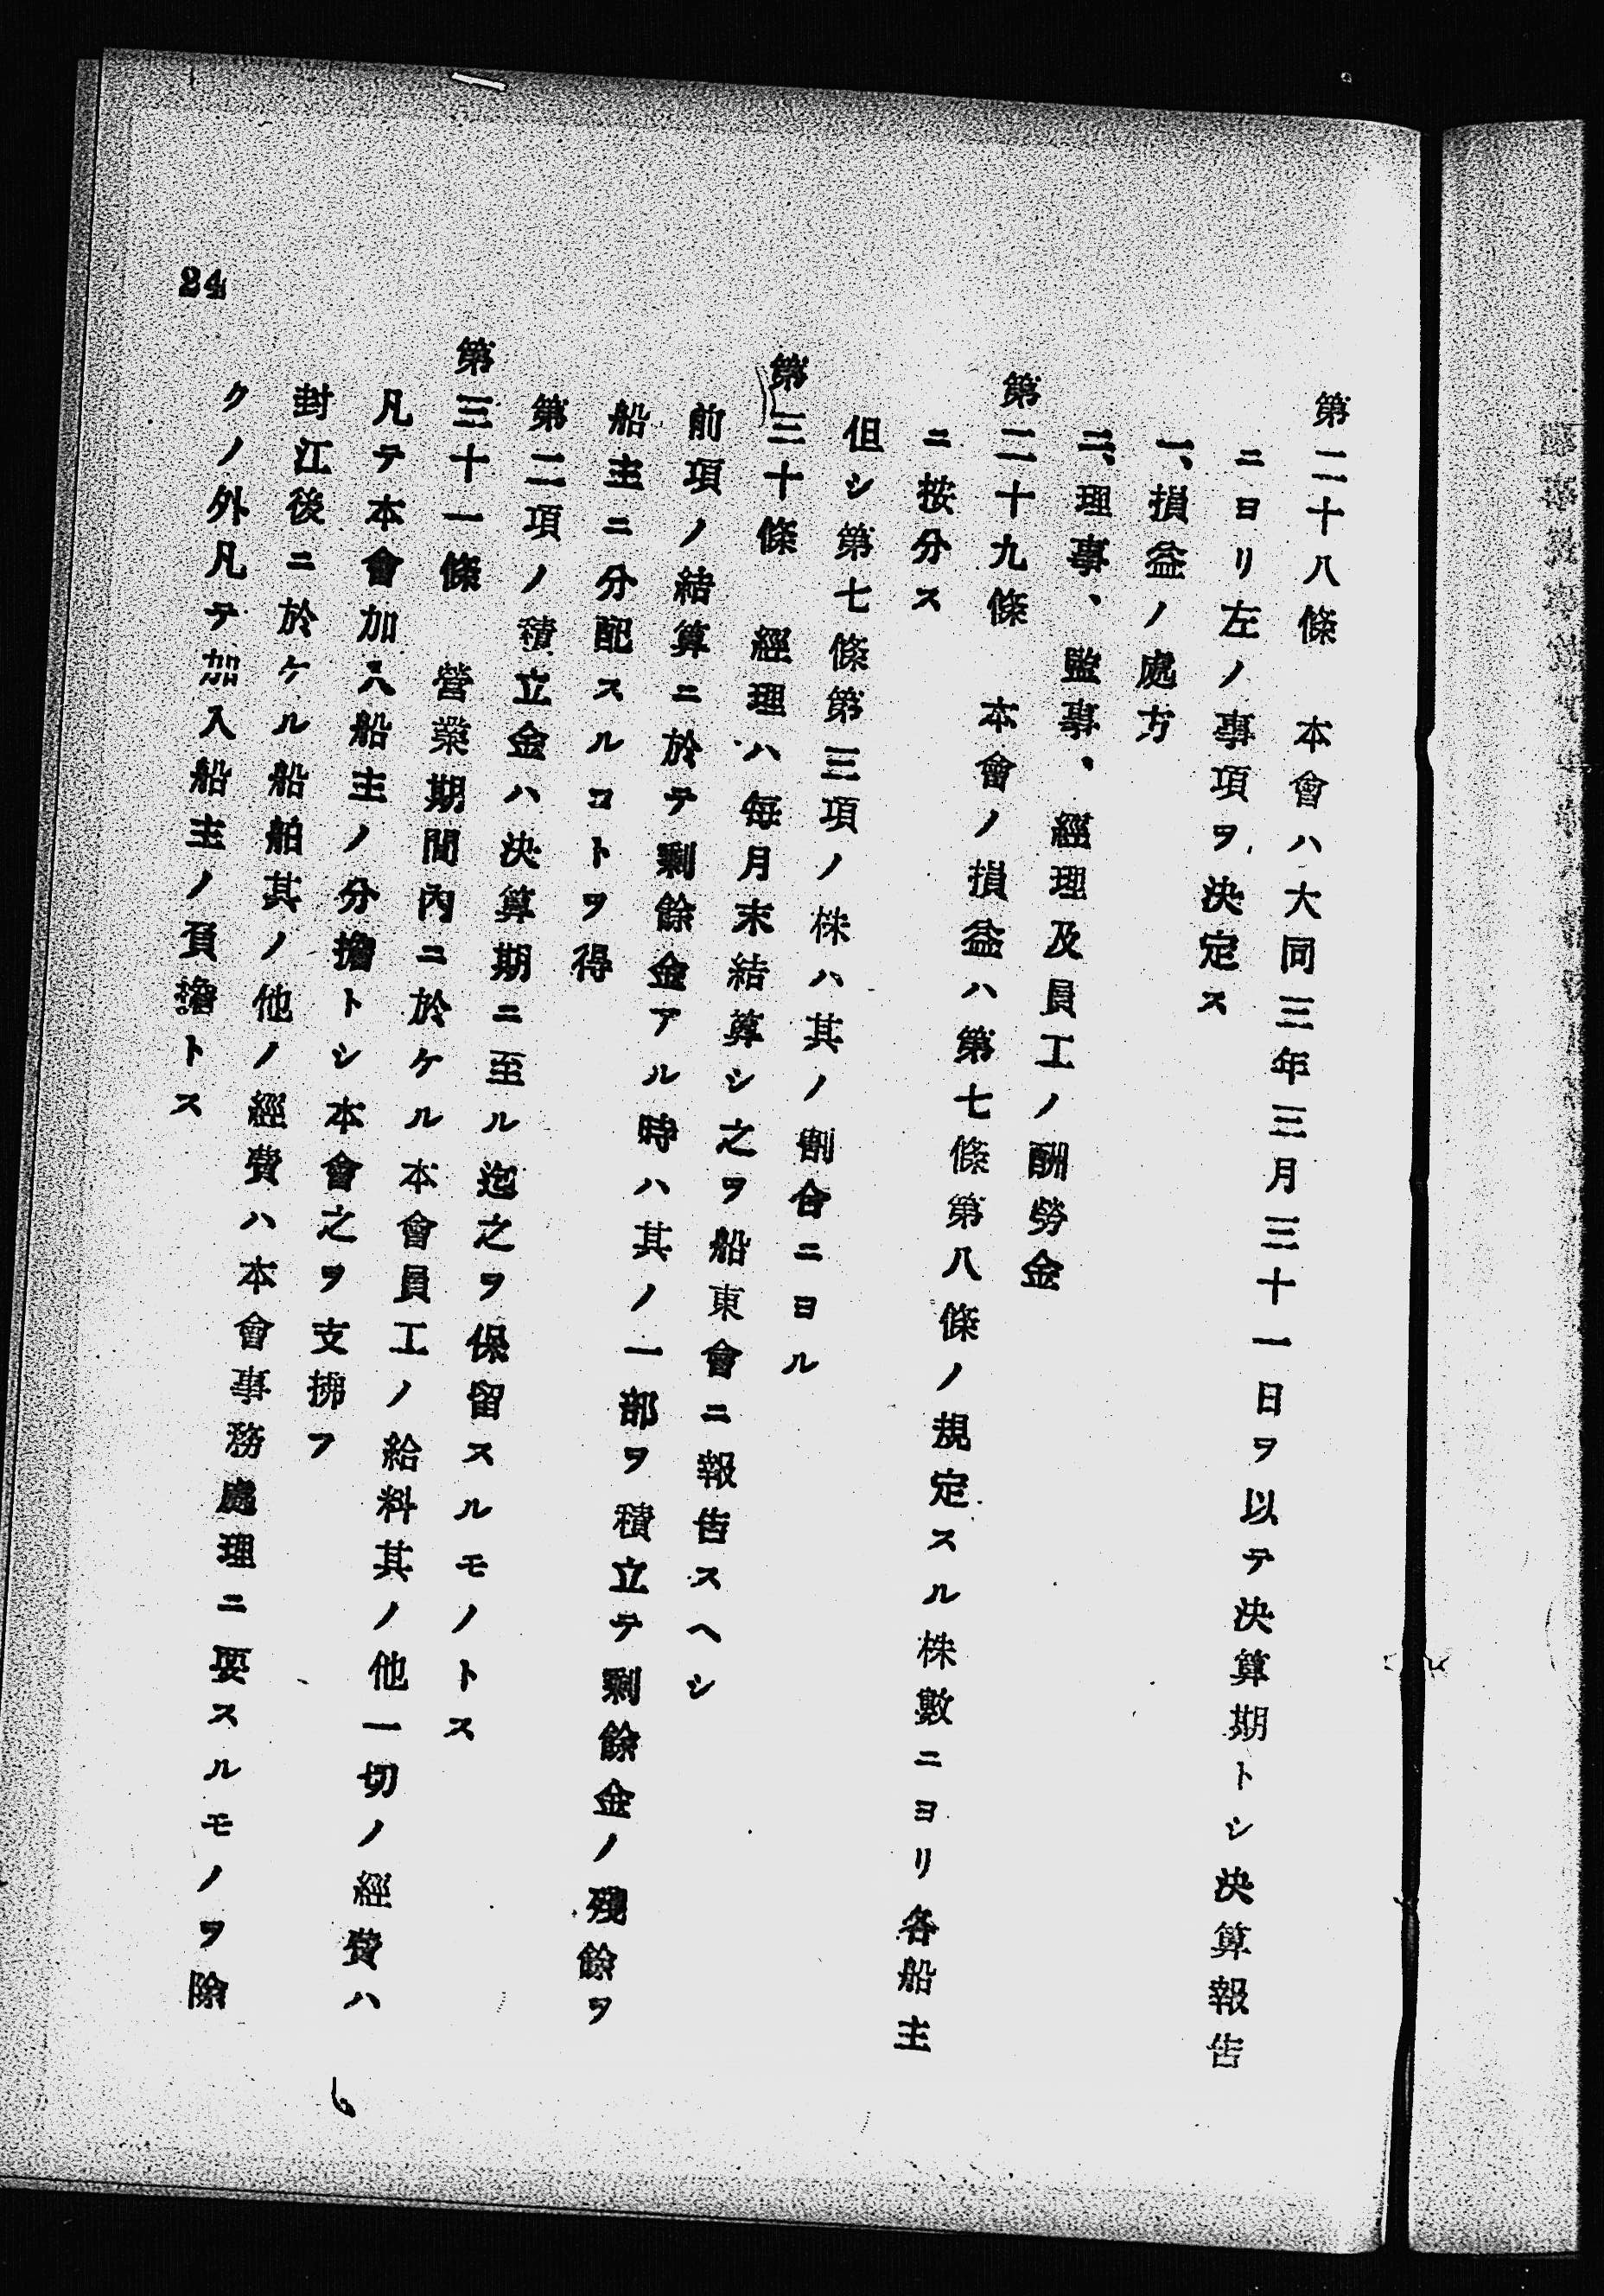 第二十八條　本會ハ大同三年三月三十一日ヲ以テ決算期トシ決算報告
ニヨリ左ノ事項ヲ決定ス
一、損益ノ處方
二、理事、監事、經理及員工ノ酬勞金
第二十九條　本會ノ損益ハ第七條第八條ノ規定スル株數ニヨリ各船主
ニ按分ス
但シ第七條第三項ノ株ハ其ノ割合ニヨル
第三十條　經理ハ每月末結算シ之ヲ船東會ニ報告スヘシ
前項ノ結算ニ於テ剩餘金アル時ハ其ノ一部ヲ積立テ剩餘金ノ殘餘ヲ
船主ニ分配スルコトヲ得
第二項ノ積立金ハ決算期ニ至ル迄之ヲ保留スルモノトス
第三十一條　營業期間內ニ於ケル本會員工ノ給料其ノ他一切ノ經費ハ
凡テ本會加入船主ノ分擔トシ本會之ヲ支拂フ
封江後ニ於ケル船舶其ノ他ノ經費ハ本會事務處理ニ要スルモノヲ除
クノ外凡テ加入船主ノ負擔トス
24